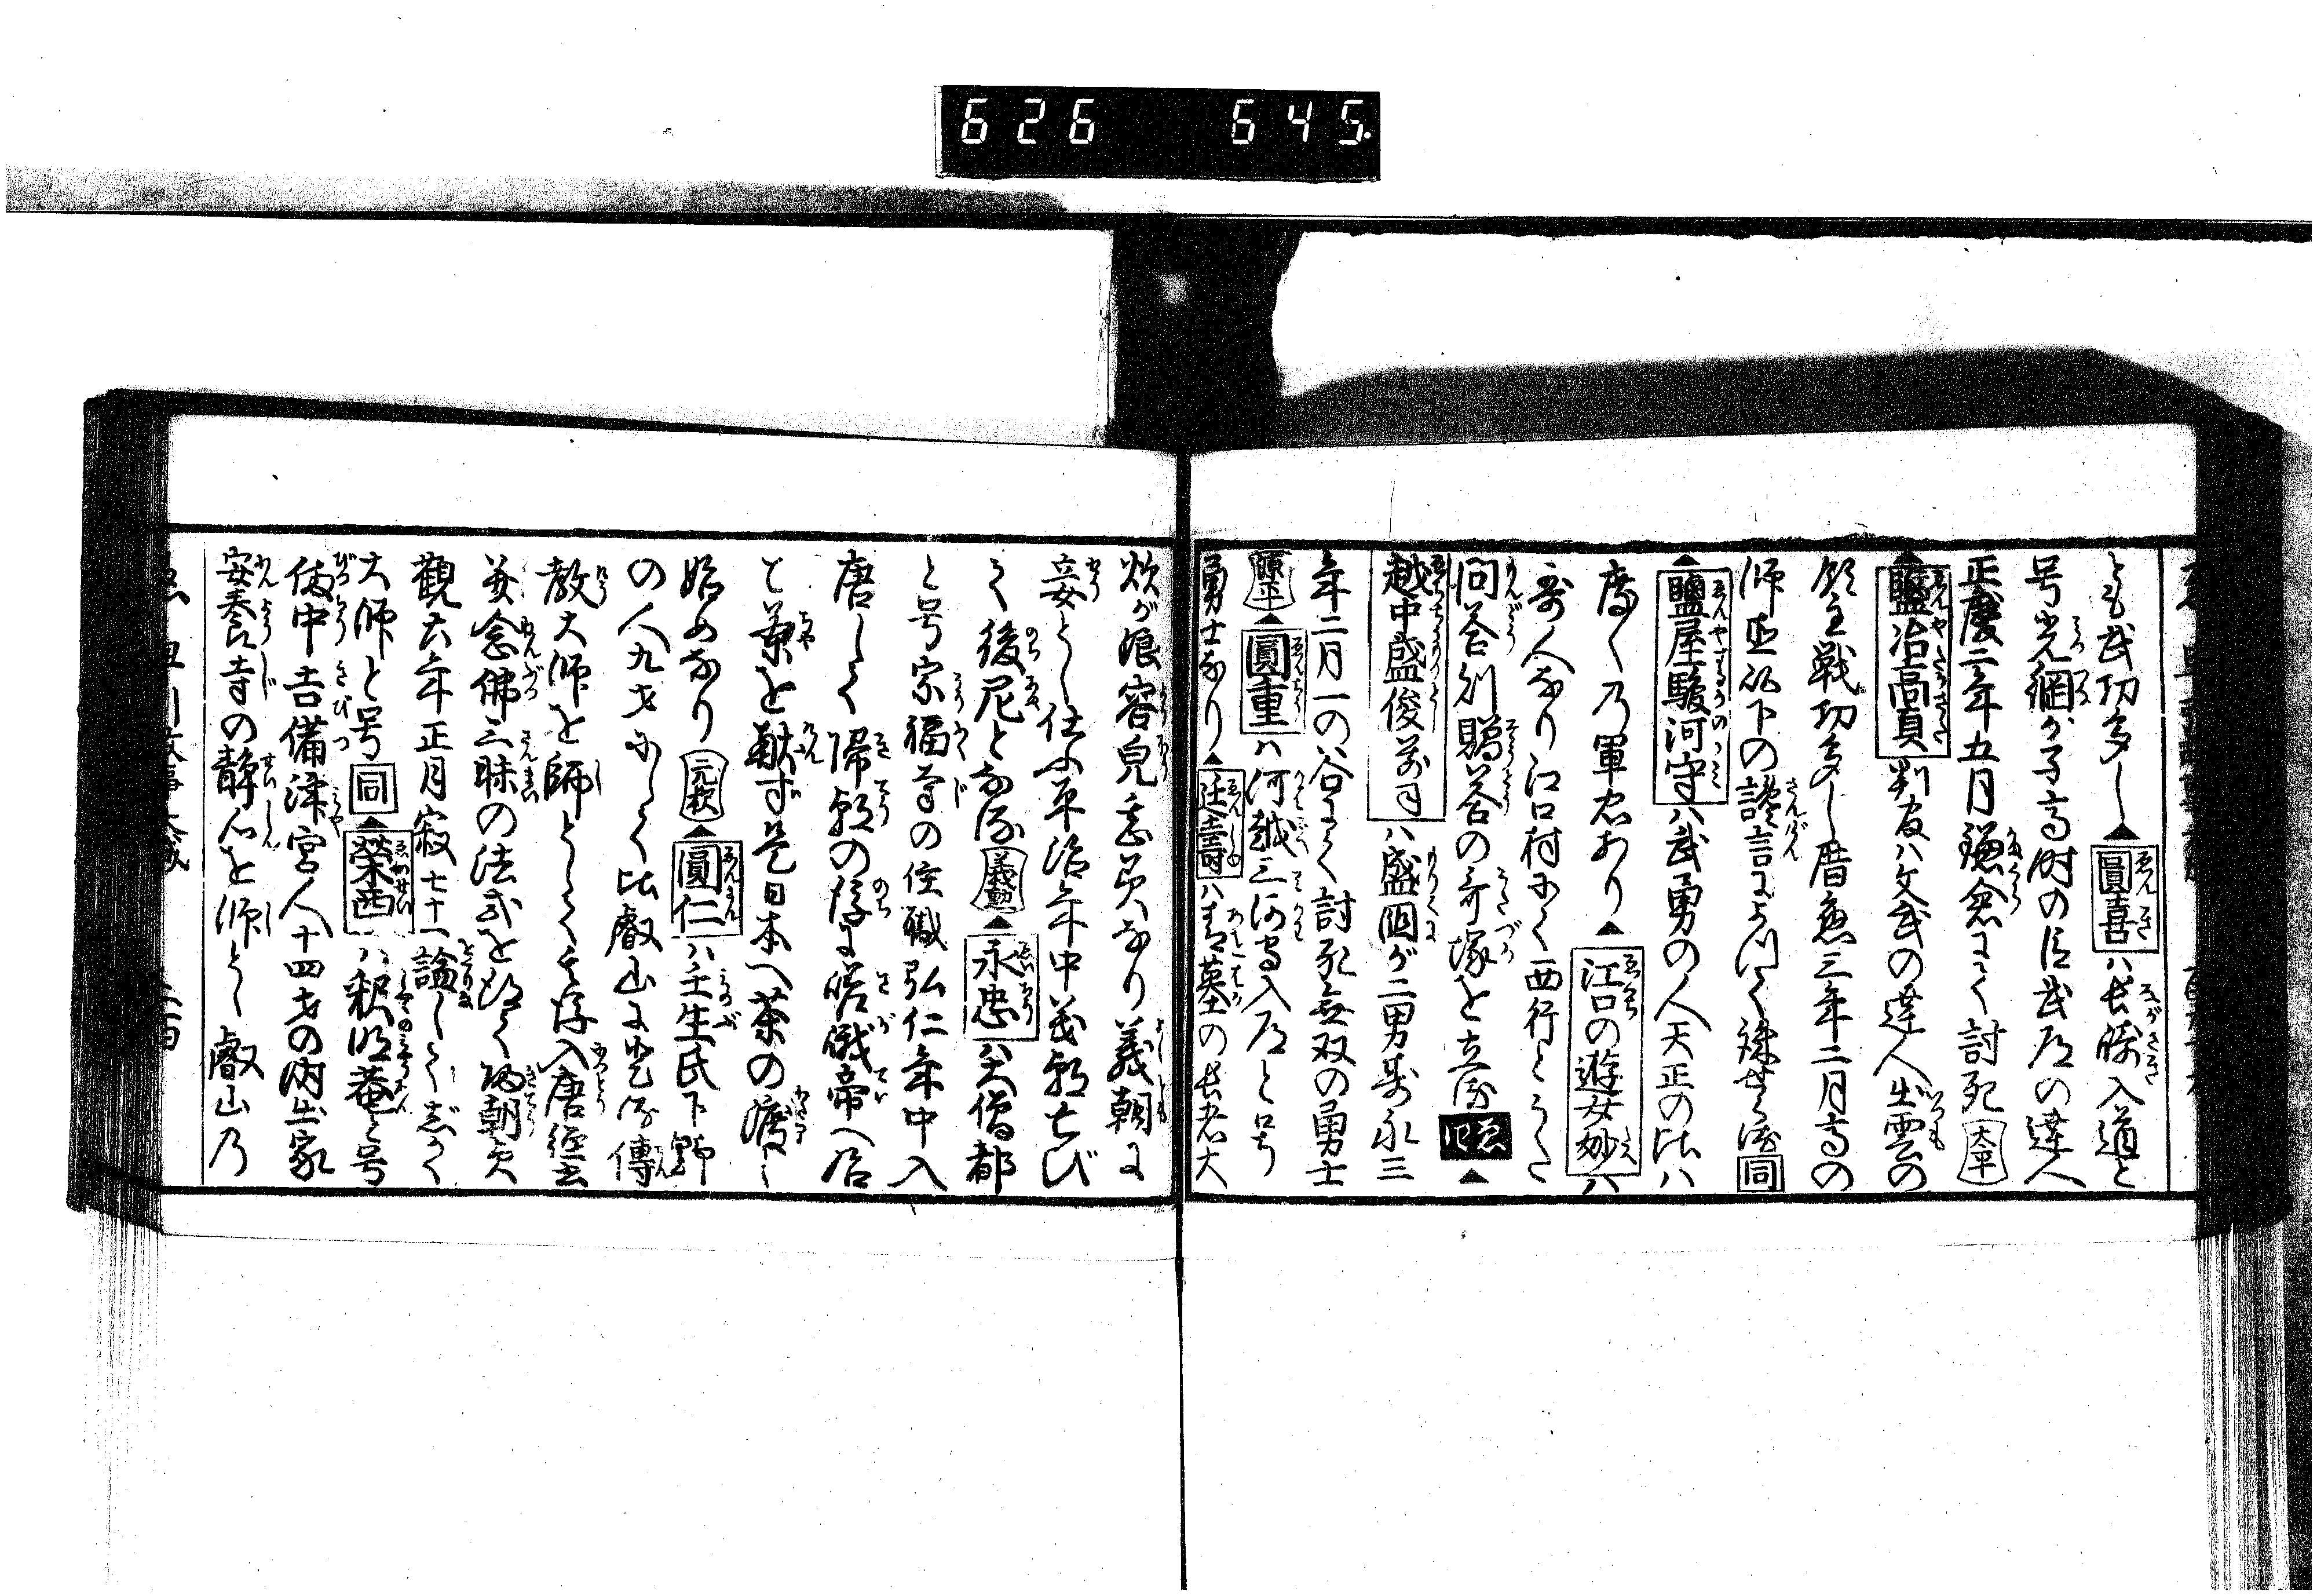 626 645
とも武功多し▲圓喜ハ長崎入道と
号光綱が子高時の臣武道の達人
正慶二年五月鎌倉にて討死 太平
▲鹽冶高貞判官ハ文武の達人出雲の
領主戦功多し暦應三年二月高の
師直讒言によりて誅せらる同
▲鹽屋駿河守ハ武勇の人天正の比ハ
度々乃軍忠あり▲江口の遊女妙ハ
哥人なり江口村にて西行とうた
問答贈答の哥塚を立る▲
越中盛俊前司ハ盛国が二男寿永三
年二月一の谷にて討死無双の勇士
▲圓重ハ河越三河守入道と号
勇士なり▲延壽ハ青墓の長者大
炊が娘容皃美なり義朝に
妾とし仕ふ平治年中義朝亡び
て後尼となる▲永忠ハ大僧都
と号宗福寺の住職弘仁年中入
唐して帰朝の後に嵯峨帝へ
と茶を献ず是日本へ茶の渡し
始めなり元亨▲圓仁ハ壬生氏下野
の人九才にて比叡山に登る傳
教大師を師として後入唐
念佛三昧の法を得て帰朝
觀六年正月寂七十一諡し
大師と号同▲榮西ハ釈明菴と号
備中吉備津宮人十四才の内出家
安養寺の靜心を師とし叡山乃